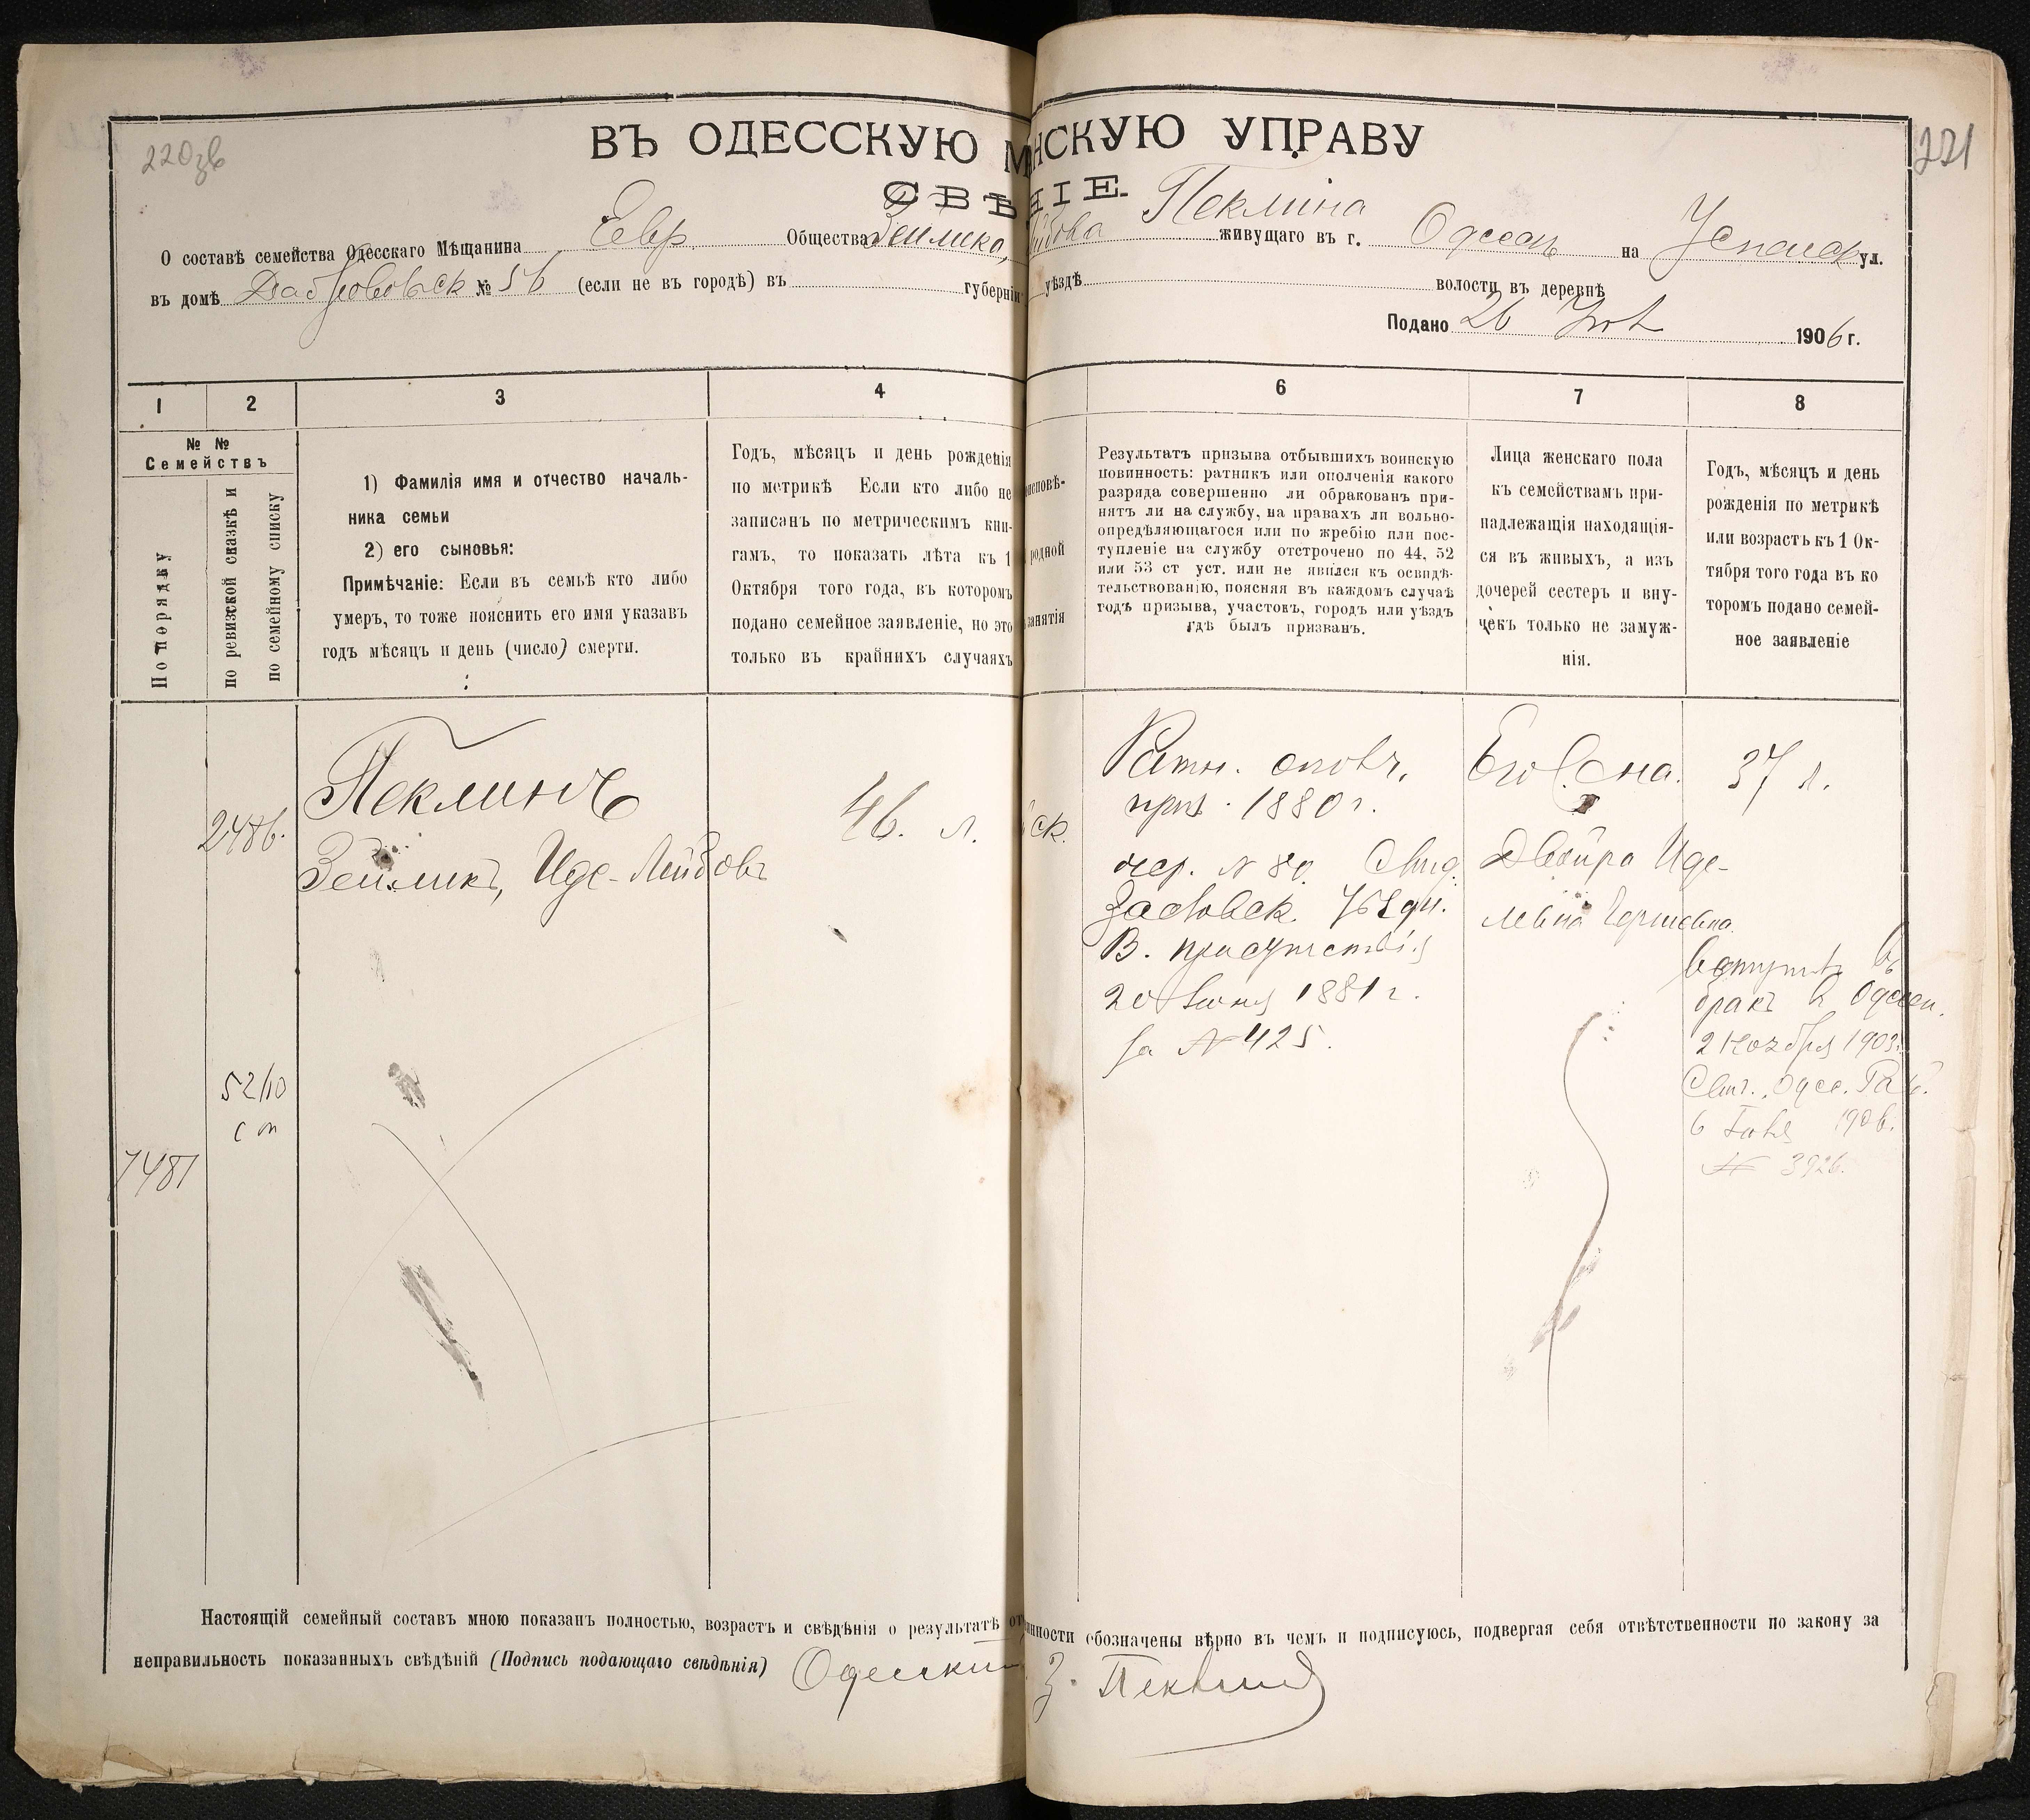 220зв
221
ВЪ ОДЕССКУЮ М НСКУЮ УПРАВУ
СВѢ НІЕ.
О составѣ семейства Одесскаго Мѣщанина Евр. Общества Зейлика, Пеклина живущаго въ г. Одессѣ на Успенск ул.
въ домѣ № 56 (если не въ городѣ) въ губерніи уѣздѣ волости въ деревнѣ
Подано 26 1906 г.
1 2 3 4 6 7 8
№ №
Семействъ
По порядку
по ревизской сказкѣ и
по семейному списку
1) Фамилія имя и отчество началь-
ника семьи
2) его сыновья:
Примѣчаніе: Если въ семьѣ кто либо
умеръ, то тоже пояснить его имя указавъ
годъ мѣсяцъ и день (число) смерти.
Годъ, мѣсяцъ и день рожденія
по метрикѣ Если кто либо не
записанъ по метрическимъ кни-
гамъ, то показать лѣта къ 1
Октября того года, въ которомъ
подано семейное заявленіе, но это
только въ крайнихъ случаяхъ
исповѣ-
родной
занятія
Результатъ призыва отбывшихъ воинскую
повинность: ратникъ или ополченія какого
разряда совершенно ли обракованъ при-
нятъ ли на службу, на правахъ ли вольно-
опредѣляющагося или по жребію или пос-
тупленіе на службу отстрочено по 44, 52
или 53 ст уст. или не явился къ освидѣ-
тельствованію, поясняя въ каждомъ случаѣ
годъ призыва, участокъ, городъ или уѣздъ
гдѣ былъ призванъ.
Лица женскаго пола
къ семействамъ при-
надлежащія находящія-
ся въ живыхъ, а изъ
дочерей сестеръ и вну-
чекъ только не замуж-
нія.
Годъ, мѣсяцъ и день
рожденія по метрикѣ
или возрастъ къ 1 Ок-
тября того года въ ко
торомъ подано семей-
ное заявленіе
2486.
5210
сп
7487
Пеклинъ
Зейликъ, Иде-Лейбовъ
46. л.
ск.
Ратн. ополч.
приз. 1880 г.
чер. № 80. Свид.
Заславск. Уѣздн.
В. присутствія
20 Іюня 1881 г.
за № 425.
Его жена.
Двойра Иде-
Гершовна.
37 л.
Вступилъ въ
бракъ въ Одессѣ.
2 Ноября 1903 г.
Свид. Одес. Рав.
6 1906.
№ 3926.
Настоящій семейный составъ мною показанъ полностью, возрастъ и свѣдѣнія о результатѣ от инности обозначены вѣрно въ чемъ и подписуюсь, подвергая себя отвѣтственности по закону за
неправильность показанныхъ свѣдѣній (Подпись подающаго свѣдѣнія) Одесскій З. Пеклинъ